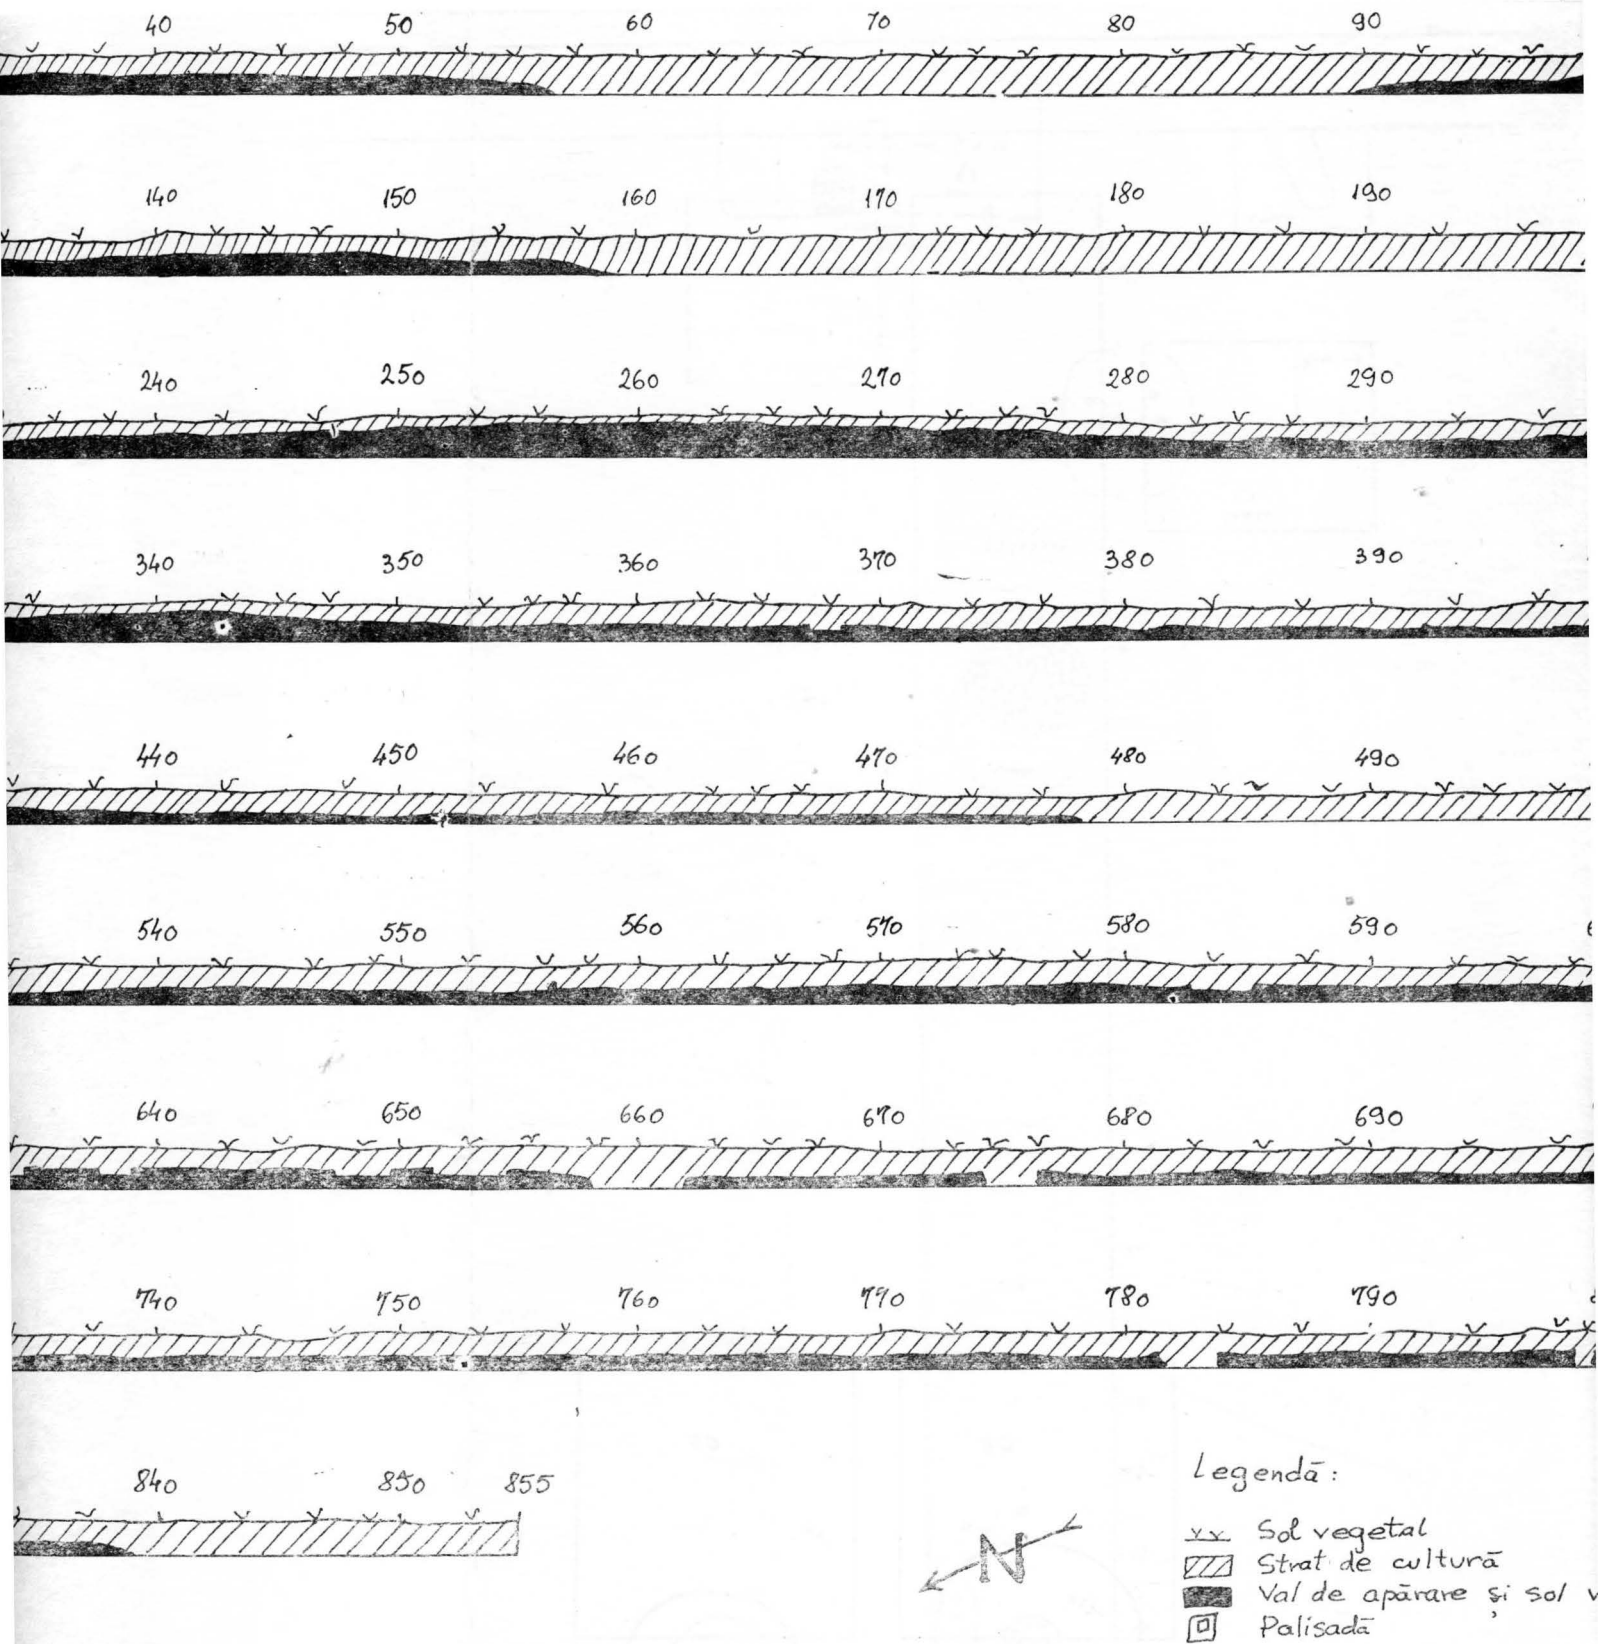 40 50 60 70 80 90
140 150 160 170 180 190
240 250 260 270 280 290
340 350 360 370 380 390
440 450 460 470 480 490
540 550 560 570 580 590
640 650 660 670 680 690
740 750 760 770 780 790
840 850 855
Legendă:
N
Sol vegetal
Strat de cultură
Val de apărare și sol v
Palisadă